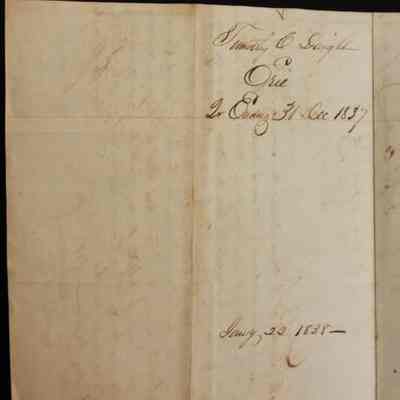 Timothy C Dwight
Erie
Qr Ending 31 Dec 1837
Jany 22 1838 —